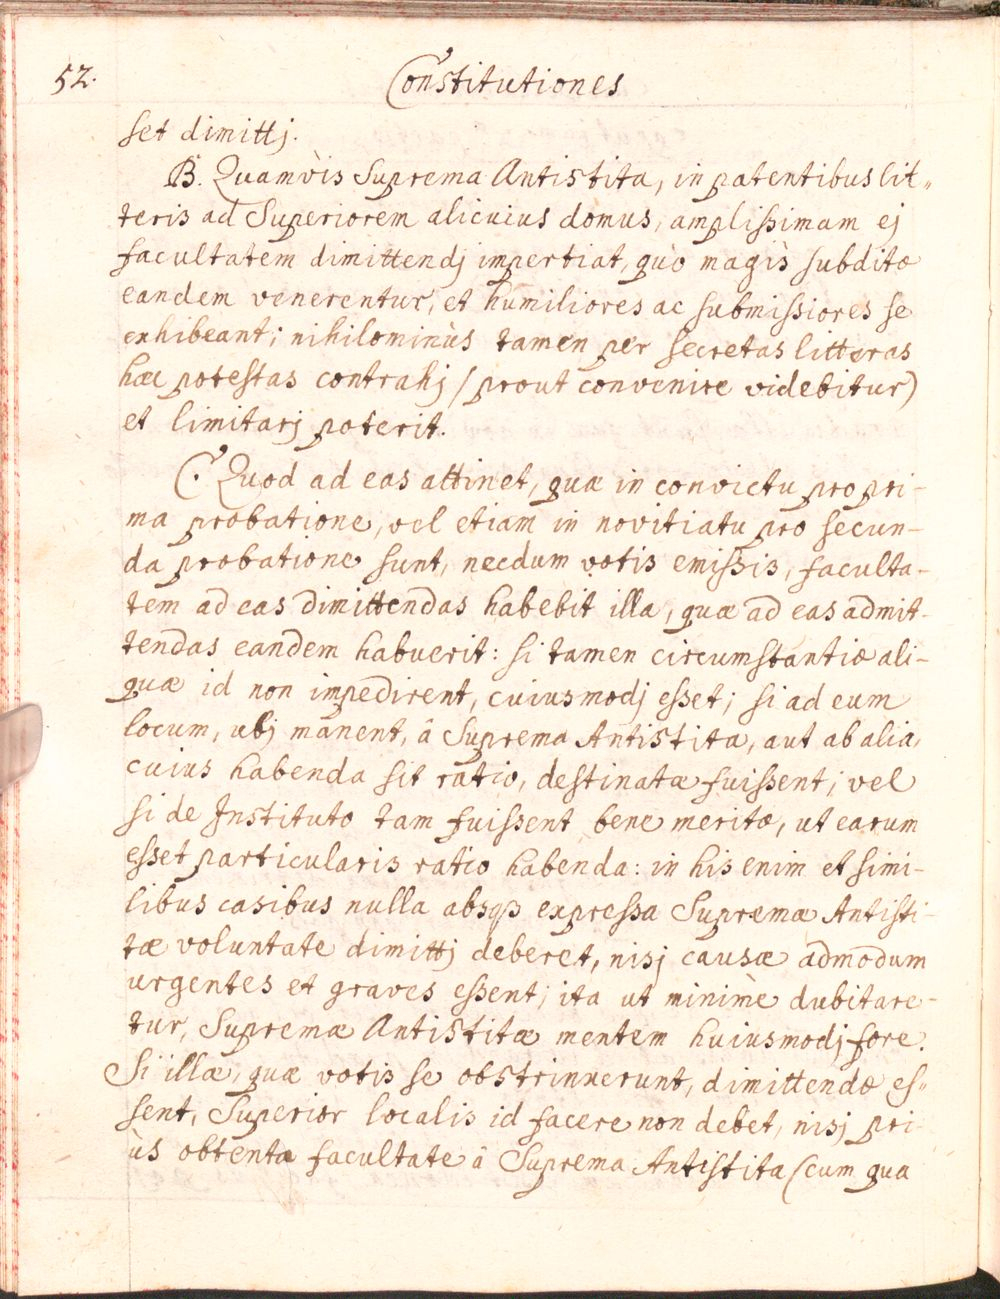 52.
Constitutiones
set dimittj.
B. Quamvìs Suprema Antistita, in patentibus lit„
teris ad Superiorem alicuius domus, amplissimam ej
facultatem dimittendj impertiat, quò magìs subditæ
eandem venerentur, et humiliores ac submissiores se
exhibeant; nihilominùs tamen per secretas litteras
hæc potestas contrahj (prout convenire videbitur)
et limitarj poterit.
C. Quod ad eas attinet, quæ in convictu pro pri-
ma probatione, vel etiam in novitiatu pro secun-
da probatione sunt, necdum votis emissis, faculta-
tem ad eas dimittendas habebit illa, quæ ad eas admit-
tendas eandem habuerit: si tamen circumstantiæ ali-
quæ id non impedirent, cuiusmodj esset; si ad eum
locum, ubj manent, â Suprema Antistita, aut ab alia,
cuius habenda sit ratio, destinatæ fuissent; vel
si de Instituto tam fuissent bene meritæ, ut earum
esset particularis ratio habenda: in his enim et simi-
libus casibus nulla absqꝫ expressa Supremæ Antisti-
tæ voluntate dimittj deberet, nisj causæ admodum
urgentes et graves essent; ita ut minimè dubitare-
tur, Supremæ Antistitæ mentem huiusmodj fore.
Si illæ, quæ votis se obstrinxerunt, dimittendæ es„
sent, Superior localis id facere non debet, nisj pri-
ùs obtenta facultate â Suprema Antistita (cum qua